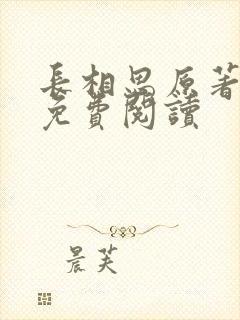 長相思原著
免費閱讀
晨芙